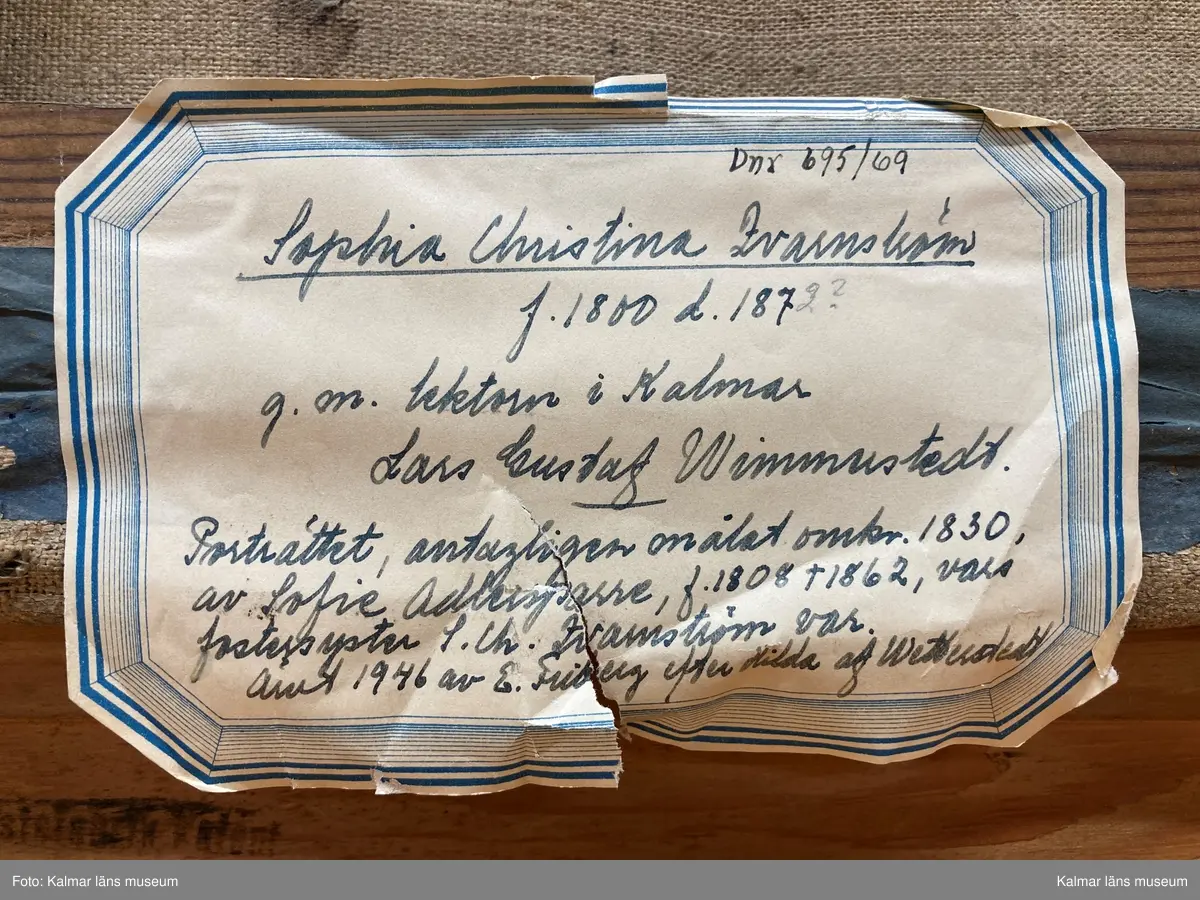 Dnr 695/69
Sophia Christina Zvarnström
f. 1800 d. 1872?
g. m. lektorn i Kalmar
Lars Gustaf Wimmerstedt.
Porträttet, antagligen målat omkr. 1830,
av Sofie Adlersparre, f. 1808 † 1862, vars
fostersyster S. Ch. Zvarnström var.
Ärvt 1946 av E. Friberg efter Hilda af Wetterstedt
Patent
Foto: Kalmar läns museum
Kalmar läns museum